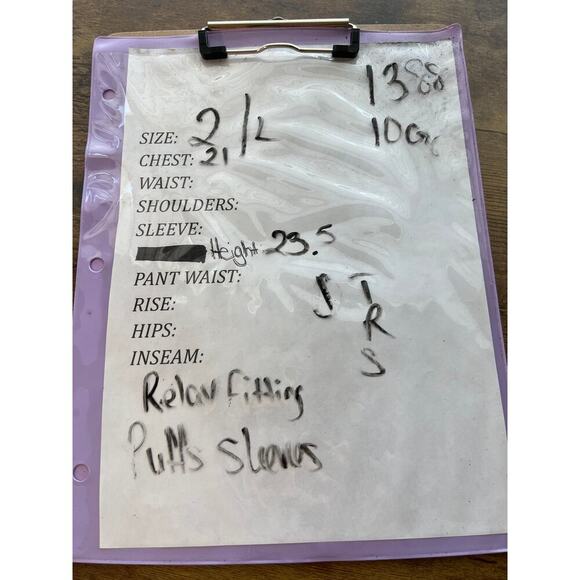 1388
10Gx
SIZE: 2/L
CHEST: 21
WAIST:
SHOULDERS:
SLEEVE:
Height 23.5
PANT WAIST:
RISE:
HIPS:
INSEAM:
J T
R
S
Relax fitting
Puffs Sleeves